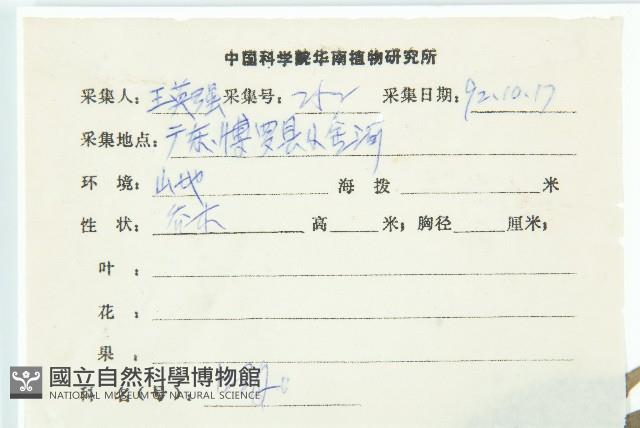 中国科学院华南植物研究所
采集人：王英强 采集号：252 采集日期：92.10.17
采集地点：广东、博罗县
环 境：山地 海 拨 米
性 状：乔木 高 米；胸径 厘米；
叶：
花：
果：
科 名（号）：
國立自然科學博物館
NATIONAL MUSEUM OF NATURAL SCIENCE